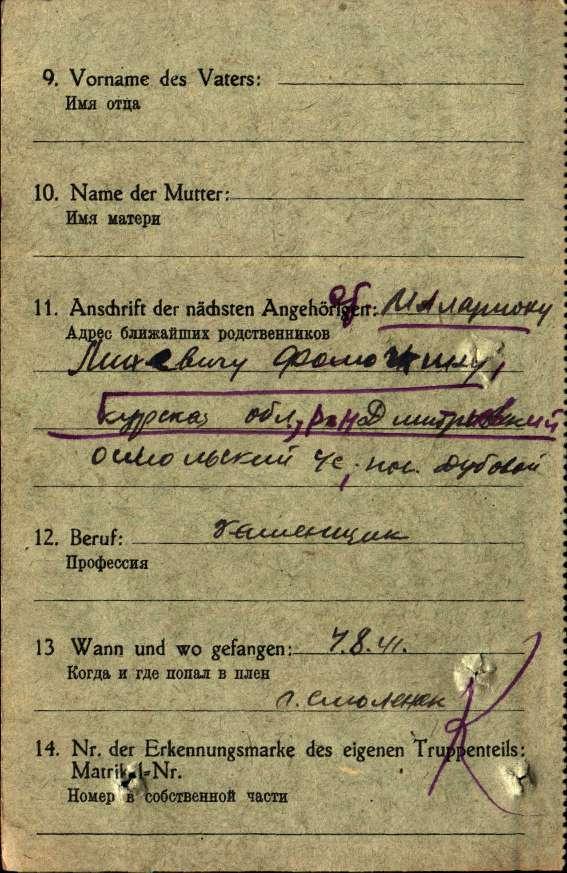 9. Vorname des Vaters:
Имя отца
10. Name der Mutter:
Имя матери
11. Anschrift der nächsten Angehörigen: Иллариону
Адрес ближайших родственников
Фомочкину,
курская обл, р-н Дмитровский
осмольский с/с, пос. Дубовой
12. Beruf: каменщик
Профессия
13 Wann und wo gefangen: 7.8.41.
Когда и где попал в плен
г. Смоленск
14. Nr. der Erkennungsmarke des eigenen Truppenteils:
Matrikel-Nr.
Номер в собственной части
К